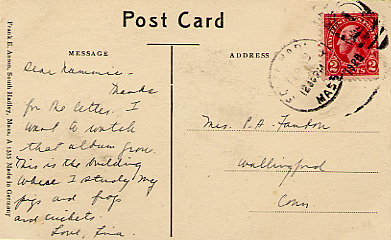 Post Card
MESSAGE
ADDRESS
Dear Mammie –
Thanks
for the letter. I
want to watch
that album grow.
This is the building
where I study my
pigs and frogs
and crickets.
Love, Lina.
Mrs. P.A.
Wallingford
Conn
Frank E. Aston, South Hadley, Mass. A 1335 Made in Germany
UNITED STATES
2 CENTS 2
MASS.